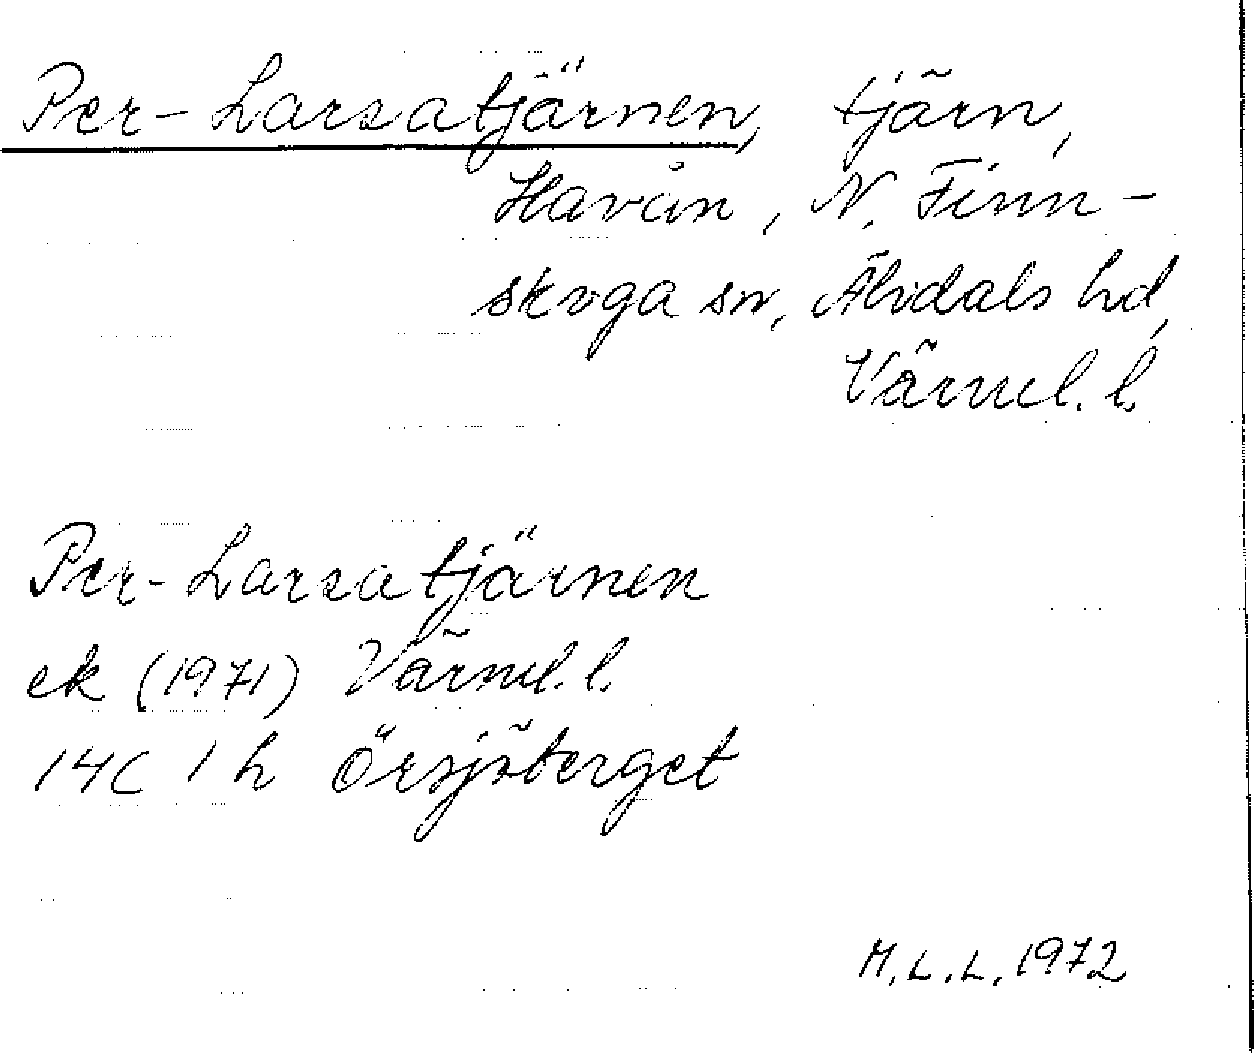 Per-Larsatjärnen, tjärn,
Havån, N. Finn-
skoga sn, Älvdals hd,
Värml. l.
Per-Larsatjärnen
ek (1971) Värml. l.
14C 1 h Örsjöberget
M.L.L. 1972